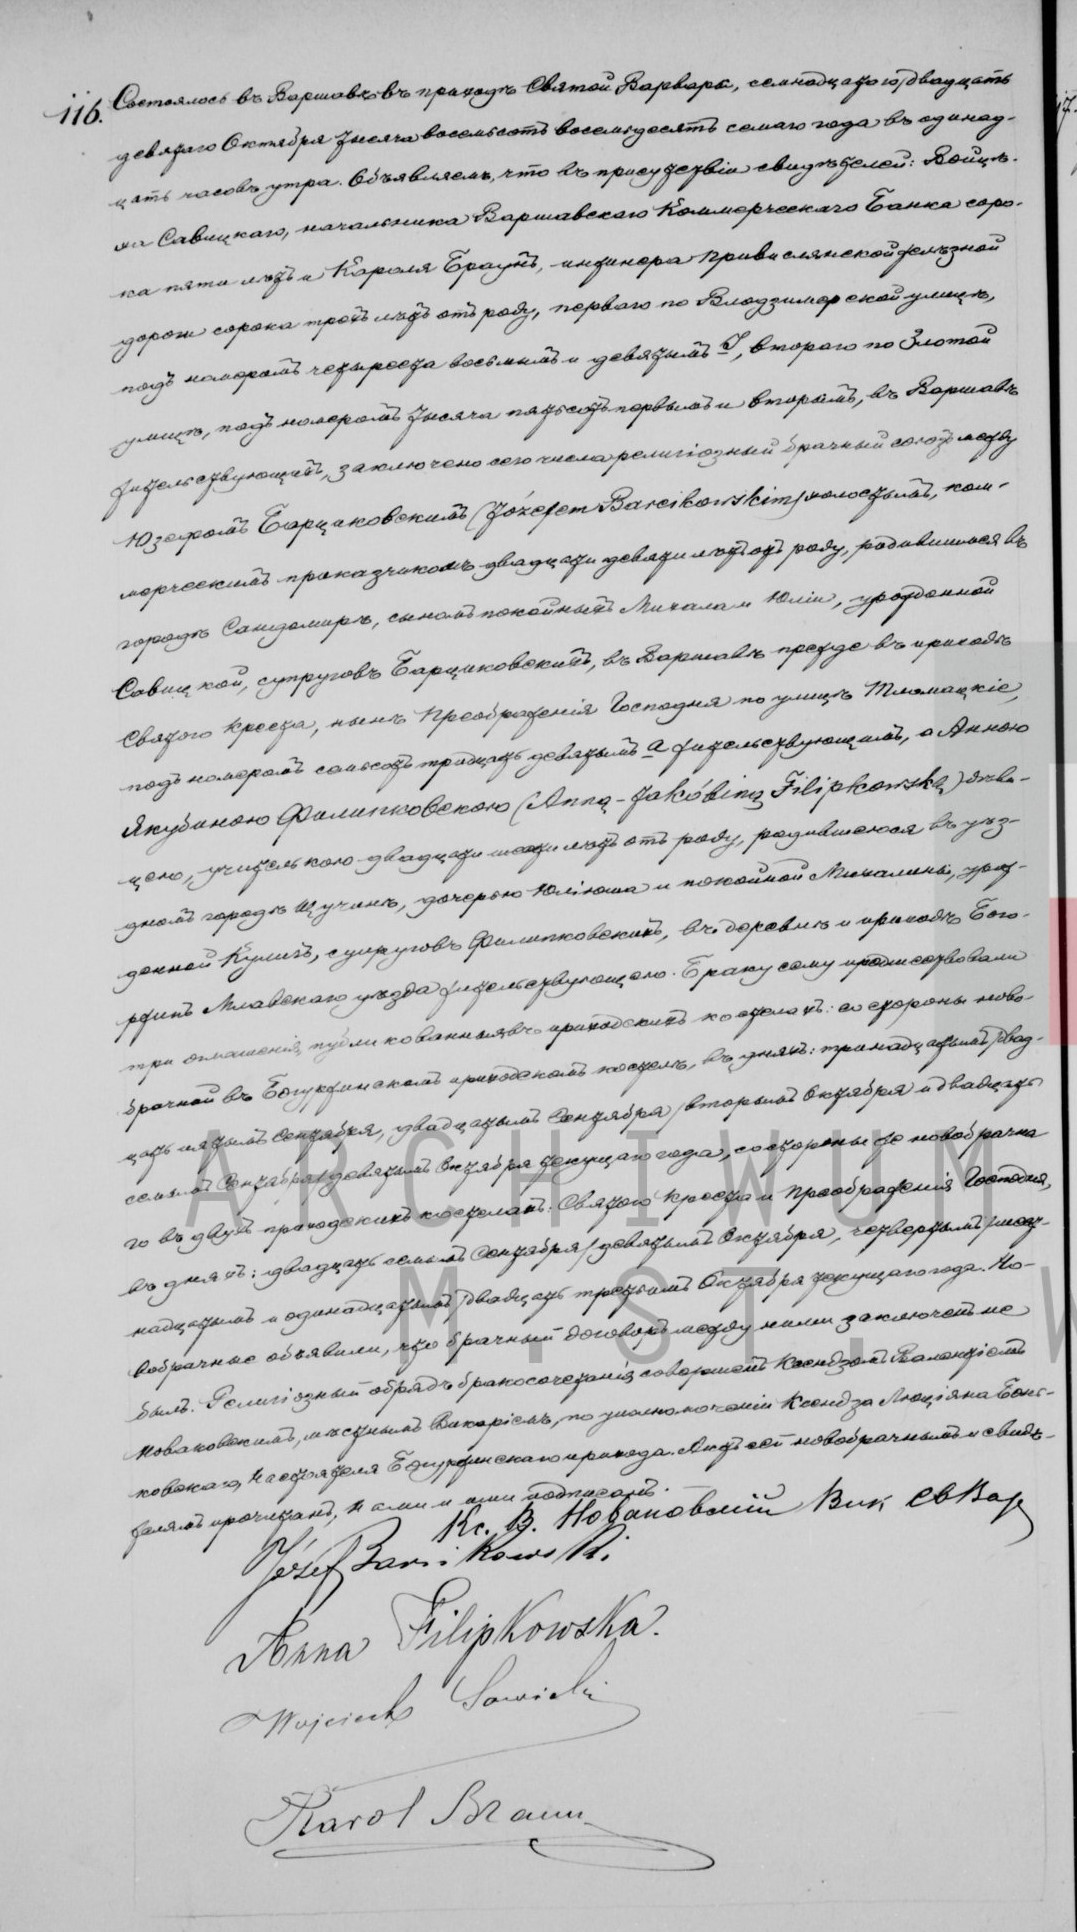 116. Состоялось въ Варшавѣ въ приходѣ Святой Варвары, семнадцатого/двадцать
девятаго Октября тысяча восемьсотъ восемьдесятъ седьмаго года въ одинад-
цать часовъ утра. Объявляемъ, что въ присутствіи свидѣтелей: Войцѣ-
ха Савицкаго, начальника Варшавскаго Коммерческаго Банка соро-
ка пяти лѣтъ и Кароля Браунъ, инженера Привислянской желѣзной
дороги сорока трехъ лѣтъ отъ роду, перваго по Влодзимерской улицѣ,
подъ номеромъ четыреста восьмымъ и девятымъ J, втораго по Злотой
улицѣ, подъ номеромъ тысяча пятьсотъ первымъ и вторымъ, въ Варшавѣ
жительствующихъ, заключено сего числа религіозный брачный союзъ между
Юзефомъ Барциковскимъ (Józefem Barcikowskim) холостымъ, ком-
мерческимъ приказчикомъ двадцати девяти лѣтъ отъ роду, родившимся въ
городѣ Сандомирѣ, сыномъ покойныхъ Михала и Юліи, урожденной
Савицкой, супруговъ Барциковскихъ, въ Варшавѣ прежде въ приходѣ
Святого Креста, нынѣ Преображенія Господня по улицѣ Тломацкіе,
подъ номеромъ семьсотъ тридцать девятымъ а жительствующимъ, а Анною
Якубиною Филипковскою (Anną-Jakóbiną Filipkowską) дѣви-
цею, учительною двадцати шести лѣтъ отъ роду, родившеюся въ уѣз-
дномъ городѣ Щучинѣ, дочерью Юліюша и покойной Михалины, урож-
денной Кулигъ, супруговъ Филипковскихъ, въ деревнѣ и приходѣ Богу-
ржинъ Млавскаго уѣзда жительствующею. Браку сему предшествовали
три оглашенія, публикованныя въ приходскихъ костелахъ: со стороны ново-
брачной въ Богуржинскомъ приходскомъ костелѣ, въ дняхъ: тринадцатымъ/двад-
цать пятымъ Сентября, двадцатымъ Сентября/вторымъ Октября и двадцать
седьмымъ Сентября/девятымъ Октября текущаго года, со стороны же новобрачна
го въ двухъ приходскихъ костелахъ: Святого Креста и Преображенія Господня,
въ дняхъ: двадцать семымъ Сентября/девятымъ Октября, четвертымъ/шест-
надцатымъ и одинадцатымъ/двадцать третьимъ Октября текущаго года. Но-
вобрачные объявили, что брачный договоръ между ними заключенъ не
былъ. Религіозный обрядъ бракосочетанія совершенъ Ксендзомъ Валентіемъ
Новаковскимъ, мѣстнымъ Викаріемъ, по уполномоченіи Ксендза Люціяна
Настоятеля Богуржинскаго прихода. Актъ сей новобрачнымъ и свидѣ-
телямъ прочитанъ, Нами и ими подписанъ.
Кс. В. Новаковскій Вик Св Вар
Józef Barcikowski
Anna Filipkowska.
Wojciech Sawicki
Karol Braun
ARCHIWUM
M. ST. W